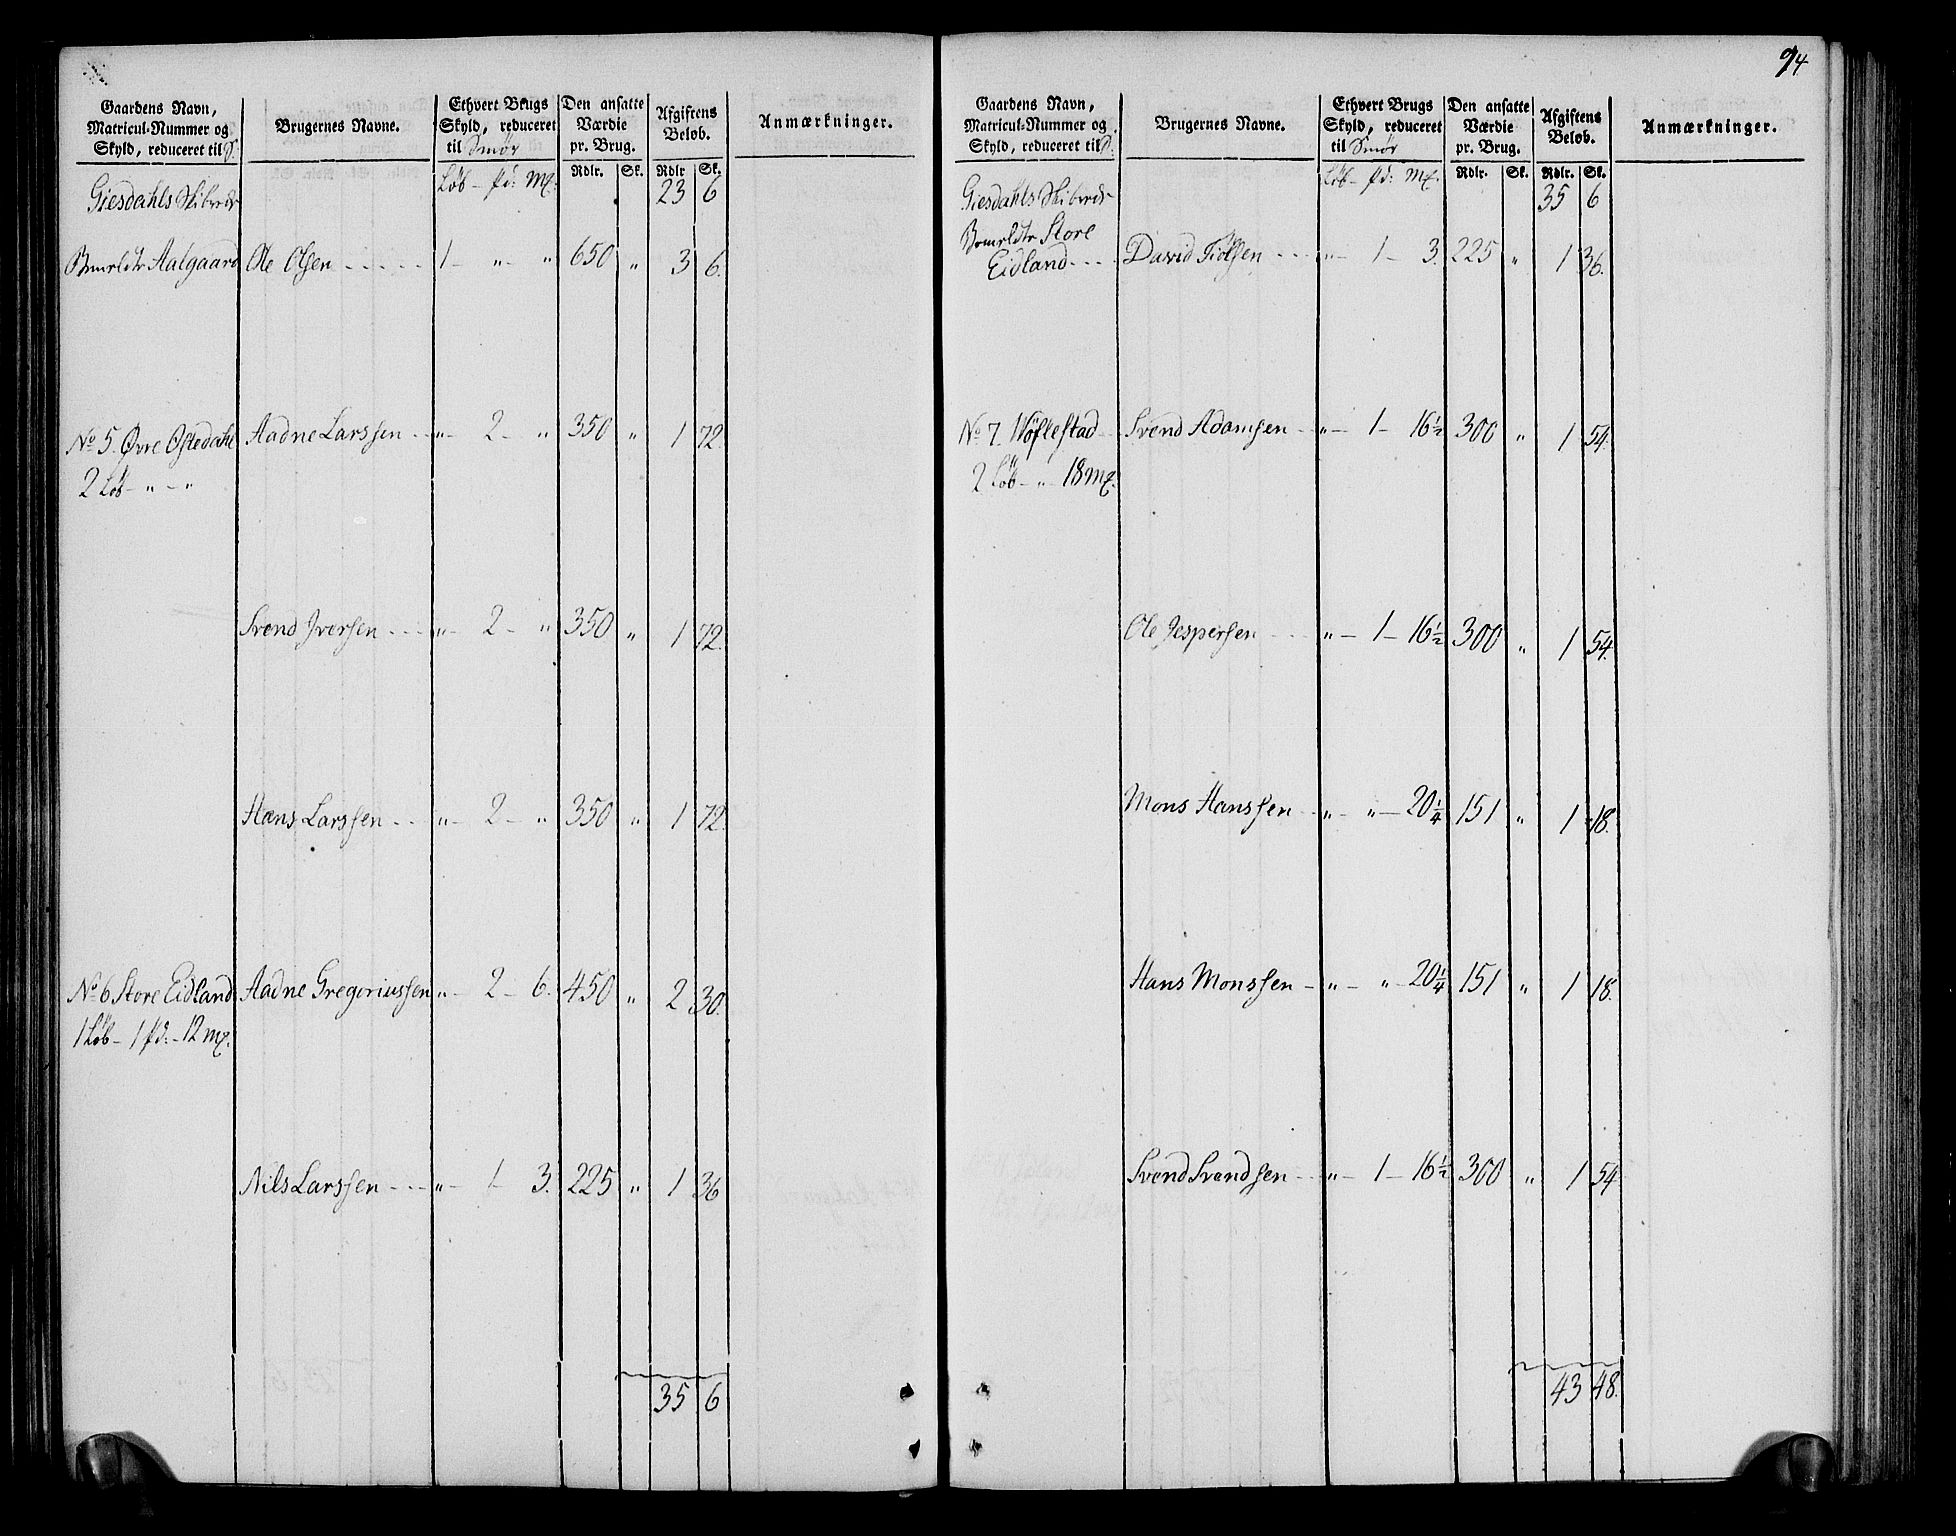 Gaardens Navn,
Matricul-Nummer og
Skyld, reduceret til S.
Brugernes Navne.
Ethvert Brugs
Skyld, reduceret
til Smør
Den ansatte
Værdie
pr. Brug.
Afgiftens
Beløb.
Anmærkninger.
Løb - pd: mƶ.
Rdlr. Sk. Rdlr Sk.
Giesdahls Skibrede 23 6
Bemeldte Aalgaard Ole Olsen 1 - „ - „ 650 „ 3 6.
No 5. Øvre Oftedahl Aadne Larssen „ - 2 - „ 350 „ 1 72.
2 Løb - „ - „
Svend Iversen „ - 2 - „ 350 „ 1 72.
Hans Larssen „ - 2 - „ 350 „ 1 72.
No 6 Store Eidland Aadne Gregoriussen „ - 2 - 6. 450 „ 2 30.
1 Løb - 1 pd: - 12 mƶ.
Nils Larssen „ - 1 - 3. 225 „ 1 36
35 6
94
Gaardens Navn,
Matricul-Nummer og
Skyld, reduceret til S.
Brugernes Navne.
Ethvert Brugs
Skyld, reduceret
til Smør
Den ansatte
Værdie
pr. Brug.
Afgiftens
Beløb.
Anmærkninger.
Løb - pd: mƶ.
Rdlr. Sk. Rdlr. Sk.
Giesdahls Skibrede 35 6
Bemeldte Store
Eidland David Tiølsen „ - 1 - 3. 225 „ 1 36.
No 7. Nøflestad Svend Adamsen „ - 1 - 16½ 300 „ 1 54.
2 Løb - „ - 18 mƶ.
Ole Jespersen „ - 1 - 16½ 300 „ 1 54.
Mons Hanssen „ - „ - 20¼ 151 „ 1 18.
Hans Monssen „ - „ - 20¼ 151 „ 1 18.
Svend Svendsen „ - 1 - 16½ 300 „ 1 54
43 48.